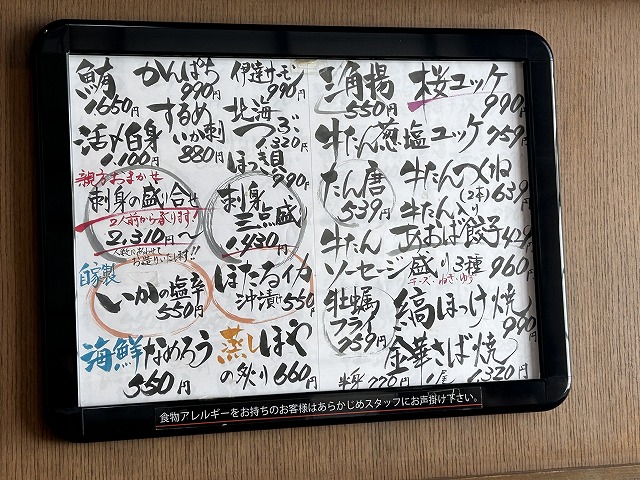 鮪
1,650円
かんぱち
990円
伊達サーモン
990円
活〆白身
1,100円
するめ
いか刺
880円
北海
つぶ
1,320円
ほっき貝
990円
親方おまかせ
刺身の盛り合せ
2人前から承ります!
2,310円〜
人数にあわせて
お造りいたします!!
刺身
三点盛り
1,430円
自家製
いかの塩辛
550円
ほたるイカ
沖漬
550円
海鮮なめろう
550円
蒸しほや
の炙り660円
三角揚
550円
桜ユッケ
990円
牛たん葱塩ユッケ759円
たん唐
539円
牛たんつくね
(2本)639円
牛たん
あおば餃子429円
牛たん
ソーセージ盛り3種
960円
チーズ・ねぎ・ゆず
牡蠣
フライ
759円
縞ほっけ焼
990円
金華さば焼
1,320円
半身770円
食物アレルギーをお持ちのお客様はあらかじめスタッフにお声掛け下さい。